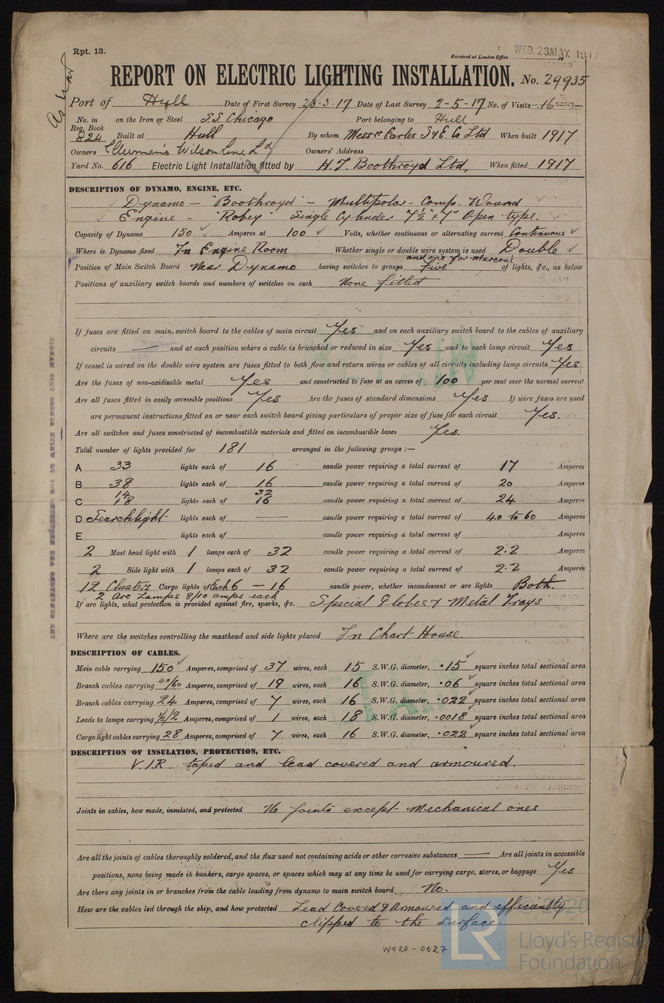 Rpt. 13.
As now
Received at London Office WED. 23 MAY. 1917
REPORT ON ELECTRIC LIGHTING INSTALLATION. No. 29935
Port of Hull Date of First Survey 23.3.17 Date of Last Survey 2-5-17 No. of Visits 16
No. in Reg. Book 824 on the Iron or Steel S.S. Chicago Port belonging to Hull
Built at Hull By whom Messrs Earles S & E. Co Ltd When built 1917
Owners Ellerman's Wilson Line Ld Owners' Address
Yard No. 616 Electric Light Installation fitted by H.T. Boothroyd Ltd, When fitted 1917
DESCRIPTION OF DYNAMO, ENGINE, ETC.
Dynamo - "Boothroyd" - Multipolar - Comp. Wound
Engine - "Robey" Single Cylinder 7½" x 7" Open type.
Capacity of Dynamo 150 Amperes at 100 Volts, whether continuous or alternating current Continuous
Where is Dynamo fixed In Engine Room Whether single or double wire system is used Double
Position of Main Switch Board Near Dynamo having switches to groups Five and one for Marconi of lights, &c., as below
Positions of auxiliary switch boards and numbers of switches on each None fitted
If fuses are fitted on main switch board to the cables of main circuit Yes and on each auxiliary switch board to the cables of auxiliary
circuits — and at each position where a cable is branched or reduced in size Yes and to each lamp circuit Yes
If vessel is wired on the double wire system are fuses fitted to both flow and return wires or cables of all circuits including lamp circuits Yes
Are the fuses of non-oxidisable metal Yes and constructed to fuse at an excess of 100 per cent over the normal current
Are all fuses fitted in easily accessible positions Yes Are the fuses of standard dimensions Yes If wire fuses are used
are permanent instructions fitted on or near each switch board giving particulars of proper size of fuse for each circuit Yes.
Are all switches and fuses constructed of incombustible materials and fitted on incombustible bases Yes.
Total number of lights provided for 181 arranged in the following groups :—
A 33 lights each of 16 candle power requiring a total current of 17 Amperes
B 38 lights each of 16 candle power requiring a total current of 20 Amperes
C 14 18 lights each of 32 16 candle power requiring a total current of 24 Amperes
D Searchlight lights each of — candle power requiring a total current of 40 to 60 Amperes
E lights each of candle power requiring a total current of Amperes
2 Mast head light with 1 lamps each of 32 candle power requiring a total current of 2.2 Amperes
2 Side light with 1 lamps each of 32 candle power requiring a total current of 2.2 Amperes
12 Clusters Cargo lights of Each 6 - 16 candle power, whether incandescent or arc lights Both.
2 Arc Lamps 8/10 amps each
If arc lights, what protection is provided against fire, sparks, &c. Special Globes & Metal Trays
Where are the switches controlling the masthead and side lights placed In Chart House.
DESCRIPTION OF CABLES.
Main cable carrying 150 Amperes, comprised of 37 wires, each 15 S.W.G. diameter, .15 square inches total sectional area
Branch cables carrying 40/60 Amperes, comprised of 19 wires, each 16 S.W.G. diameter, .06 square inches total sectional area
Branch cables carrying 24 Amperes, comprised of 7 wires, each 16 S.W.G. diameter, .022 square inches total sectional area
Leads to lamps carrying 1/2 Amperes, comprised of 1 wires, each 18 S.W.G. diameter, .0018 square inches total sectional area
Cargo light cables carrying 28 Amperes, comprised of 7 wires, each 16 S.W.G. diameter, .022 square inches total sectional area
DESCRIPTION OF INSULATION, PROTECTION, ETC.
V.I.R. taped and lead covered and armoured.
Joints in cables, how made, insulated, and protected No joints except Mechanical ones
Are all the joints of cables thoroughly soldered, and the flux used not containing acids or other corrosive substances — Are all joints in accessible
positions, none being made in bunkers, cargo spaces, or spaces which may at any time be used for carrying cargo, stores, or baggage Yes
Are there any joints in or branches from the cable leading from dynamo to main switch board No.
How are the cables led through the ship, and how protected Lead Covered & Armoured and efficiently
clipped to the surface.
W920-0027
© 2020
LR
Lloyd's Register
Foundation